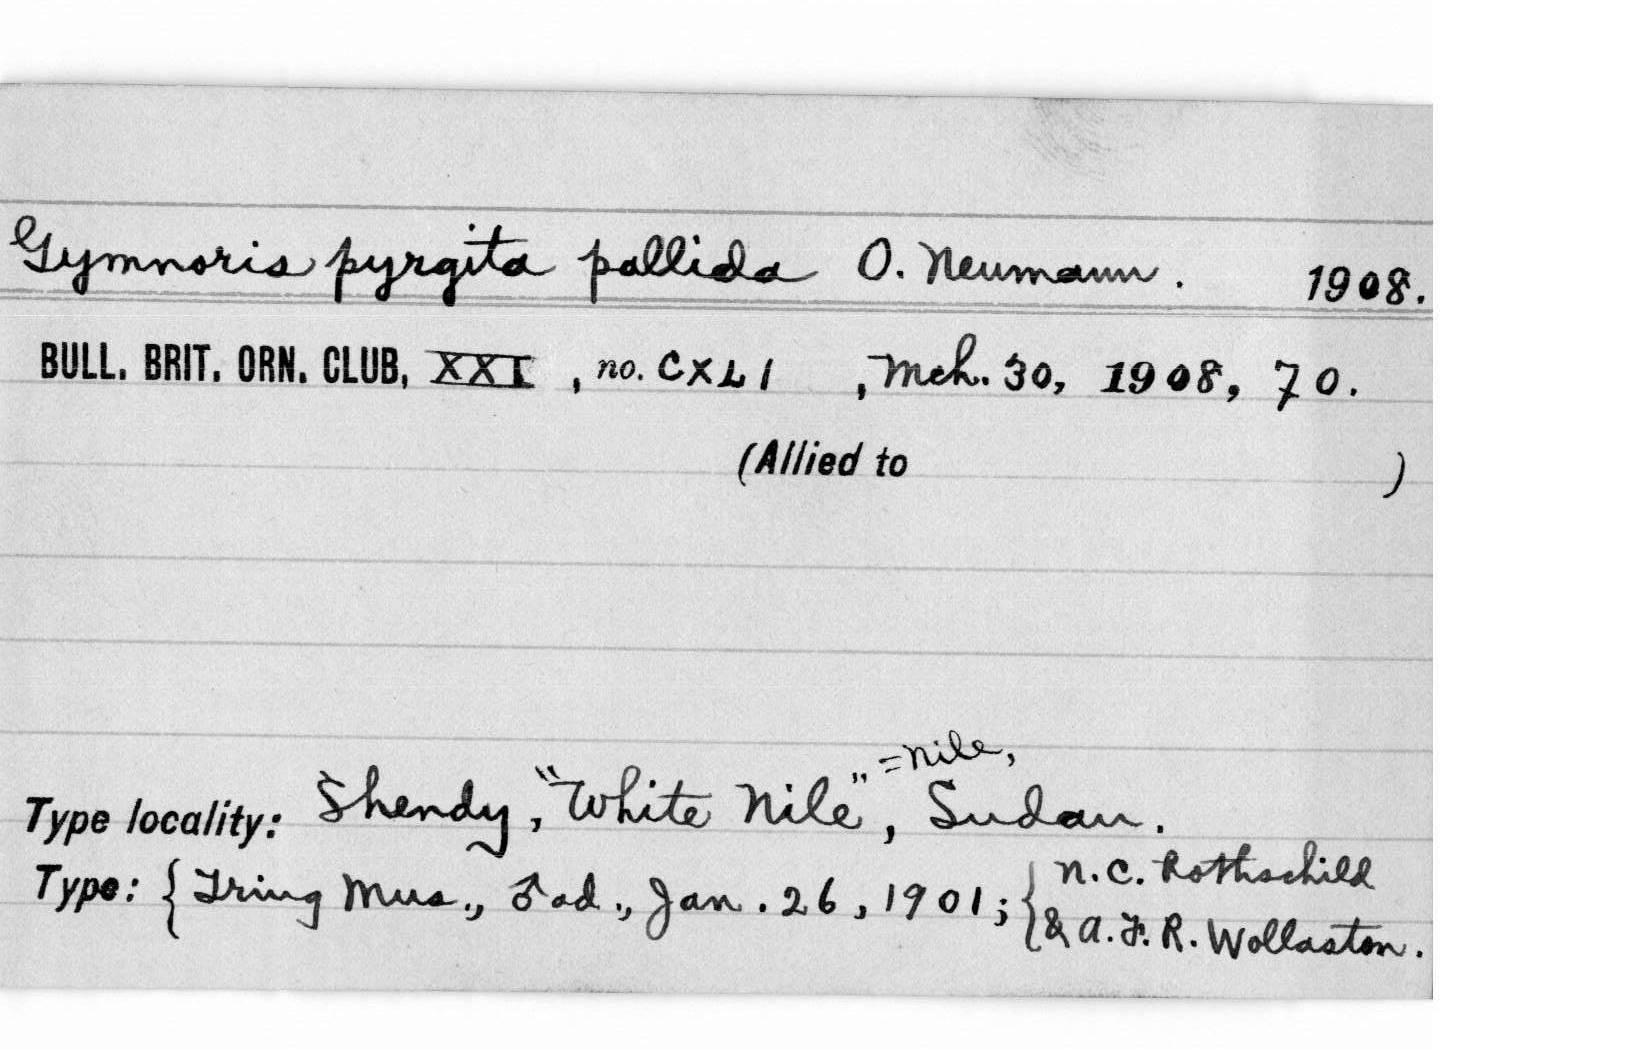 Gymnoris pyrgita pallida O. Neumann. 1908.
BULL. BRIT. ORN. CLUB, XXI, no. CXLI, Mch. 30, 1908, 70.
(Allied to )
=Nile,
Type locality: Shendy, "White Nile", Sudan.
Type: {Tring Mus., ♂ad., Jan. 26, 1901; { N.C. Rothschild
& A.F.R. Wollaston.